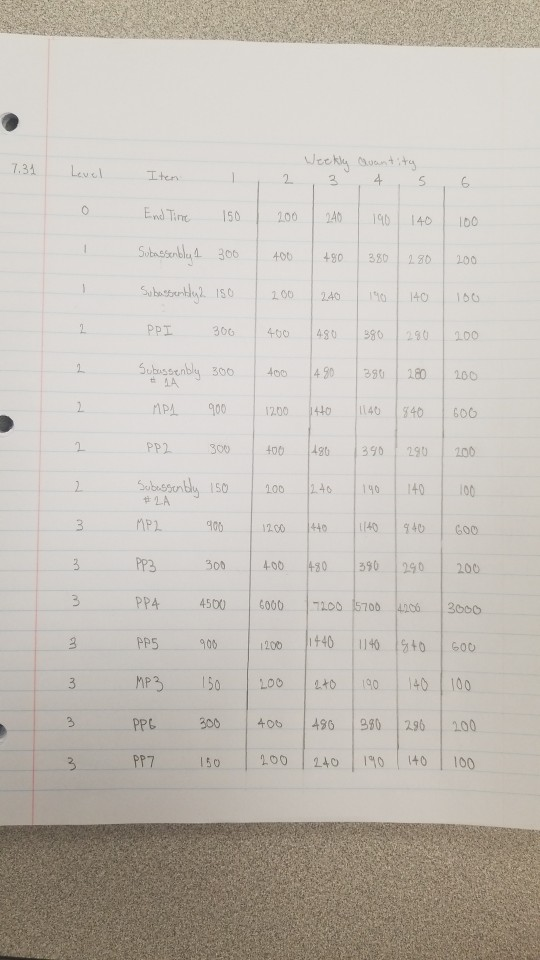 Weekly Quantity
7.31 Level Item 1 2 3 4 5 6
0 End Time 150 200 240 190 140 100
1 Subassembly 1 300 400 480 380 280 200
1 Subassembly 2 150 200 240 190 140 100
2 PPI 300 400 480 380 280 200
2 Subassembly 300 400 480 380 280 200
# 1A
2 MP1 900 1200 1440 1140 840 600
2 PP2 300 400 480 380 280 200
2 Subassembly 150 200 240 190 140 100
# 2A
3 MP2 900 1200 1440 1140 840 600
3 PP3 300 400 480 380 280 200
3 PP4 4500 6000 7200 5700 4200 3000
3 PP5 900 1200 1440 1140 840 600
3 MP3 150 200 240 190 140 100
3 PP6 300 400 480 380 280 200
3 PP7 150 200 240 190 140 100